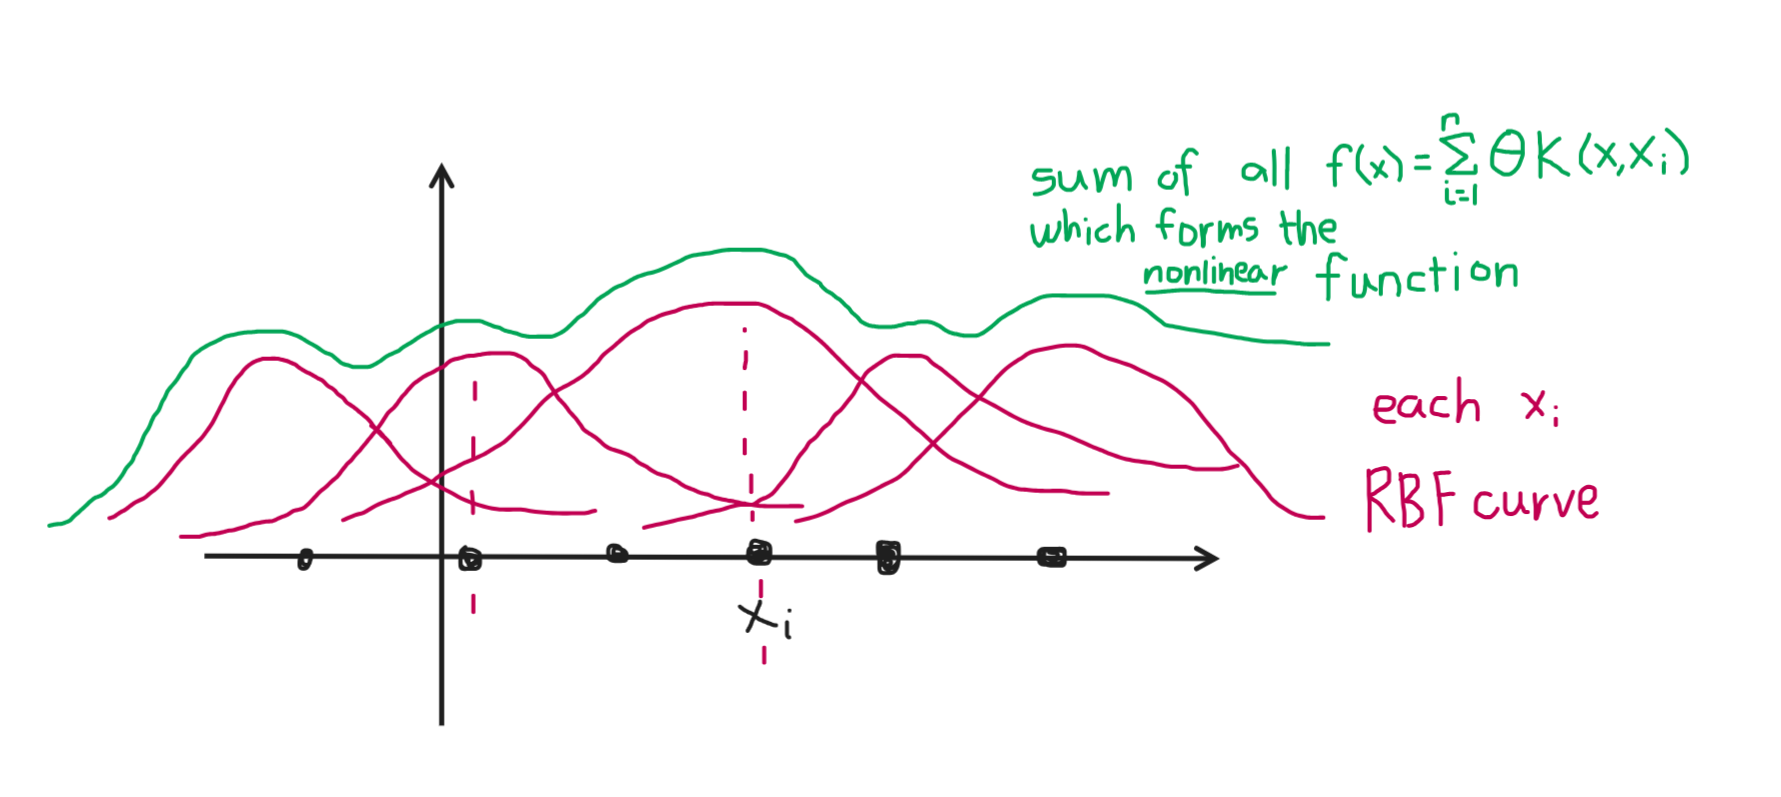 sum of all f(x) = n∑i=1 θK(x,xi)
which forms the
nonlinear function
each xi
RBF curve
xi